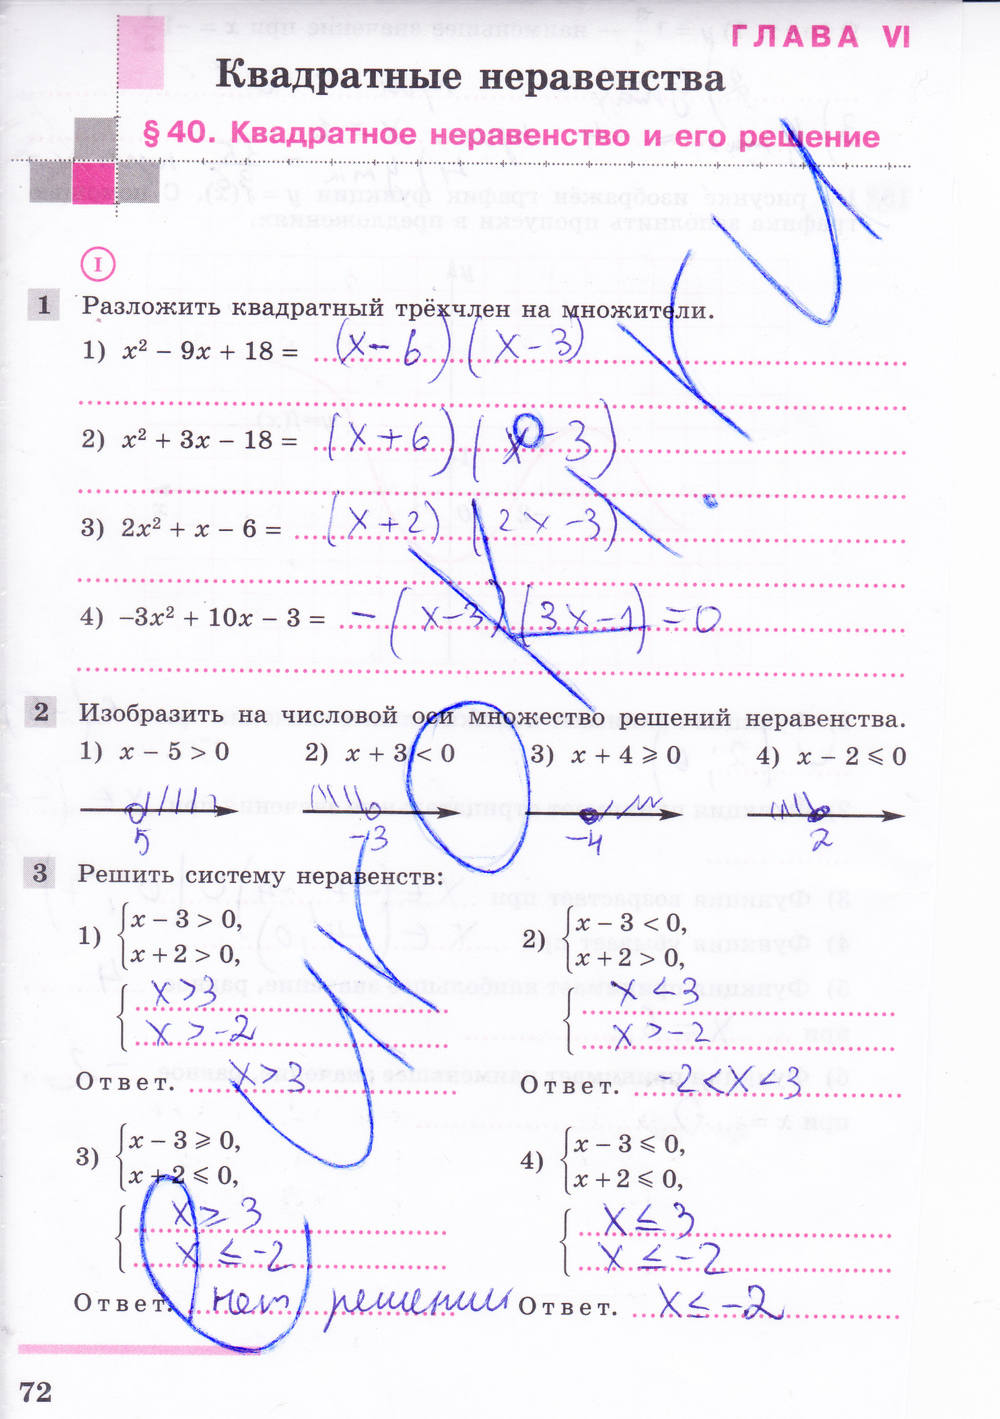 ГЛАВА VI
Квадратные неравенства
§ 40. Квадратное неравенство и его решение
I
1 Разложить квадратный трёхчлен на множители.
1) x² − 9x + 18 = (x − 6)(x − 3)
2) x² + 3x − 18 = (x + 6)(x − 3)
3) 2x² + x − 6 = (x + 2)(2x − 3)
4) −3x² + 10x − 3 = −(x−3)(3x−1) = 0
2 Изобразить на числовой оси множество решений неравенства.
1) x − 5 > 0 2) x + 3 < 0 3) x + 4 ⩾ 0 4) x − 2 ⩽ 0
5 −3 −4 2
3 Решить систему неравенств:
1) { x − 3 > 0, 2) { x − 3 < 0,
x + 2 > 0, x + 2 > 0,
{ x > 3 { x < 3
x > −2 x > −2
Ответ. x > 3 Ответ. −2 < x < 3
3) { x − 3 ⩾ 0, 4) { x − 3 ⩽ 0,
x + 2 ⩽ 0, x + 2 ⩽ 0,
{ x ≥ 3 { x ≤ 3
x ≤ −2 x ≤ −2
Ответ. нет решений Ответ. x ≤ −2
72